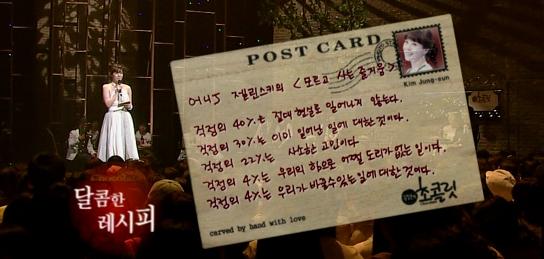 POST CARD
Kim Jung-eun
어니J 젤린스키의 <모르고 사는 즐거움>
걱정의 40%는 절대 현실로 일어나지 않는다.
걱정의 30%는 이미 일어난 일에 대한 것이다.
걱정의 22%는 사소한 고민이다.
걱정의 4%는 우리의 힘으로 어쩔 도리가 없는 일이다.
걱정의 4%는 우리가 바꿀수있는 일에 대한 것이다.
초콜릿
carved by hand with love
달콤한
레시피